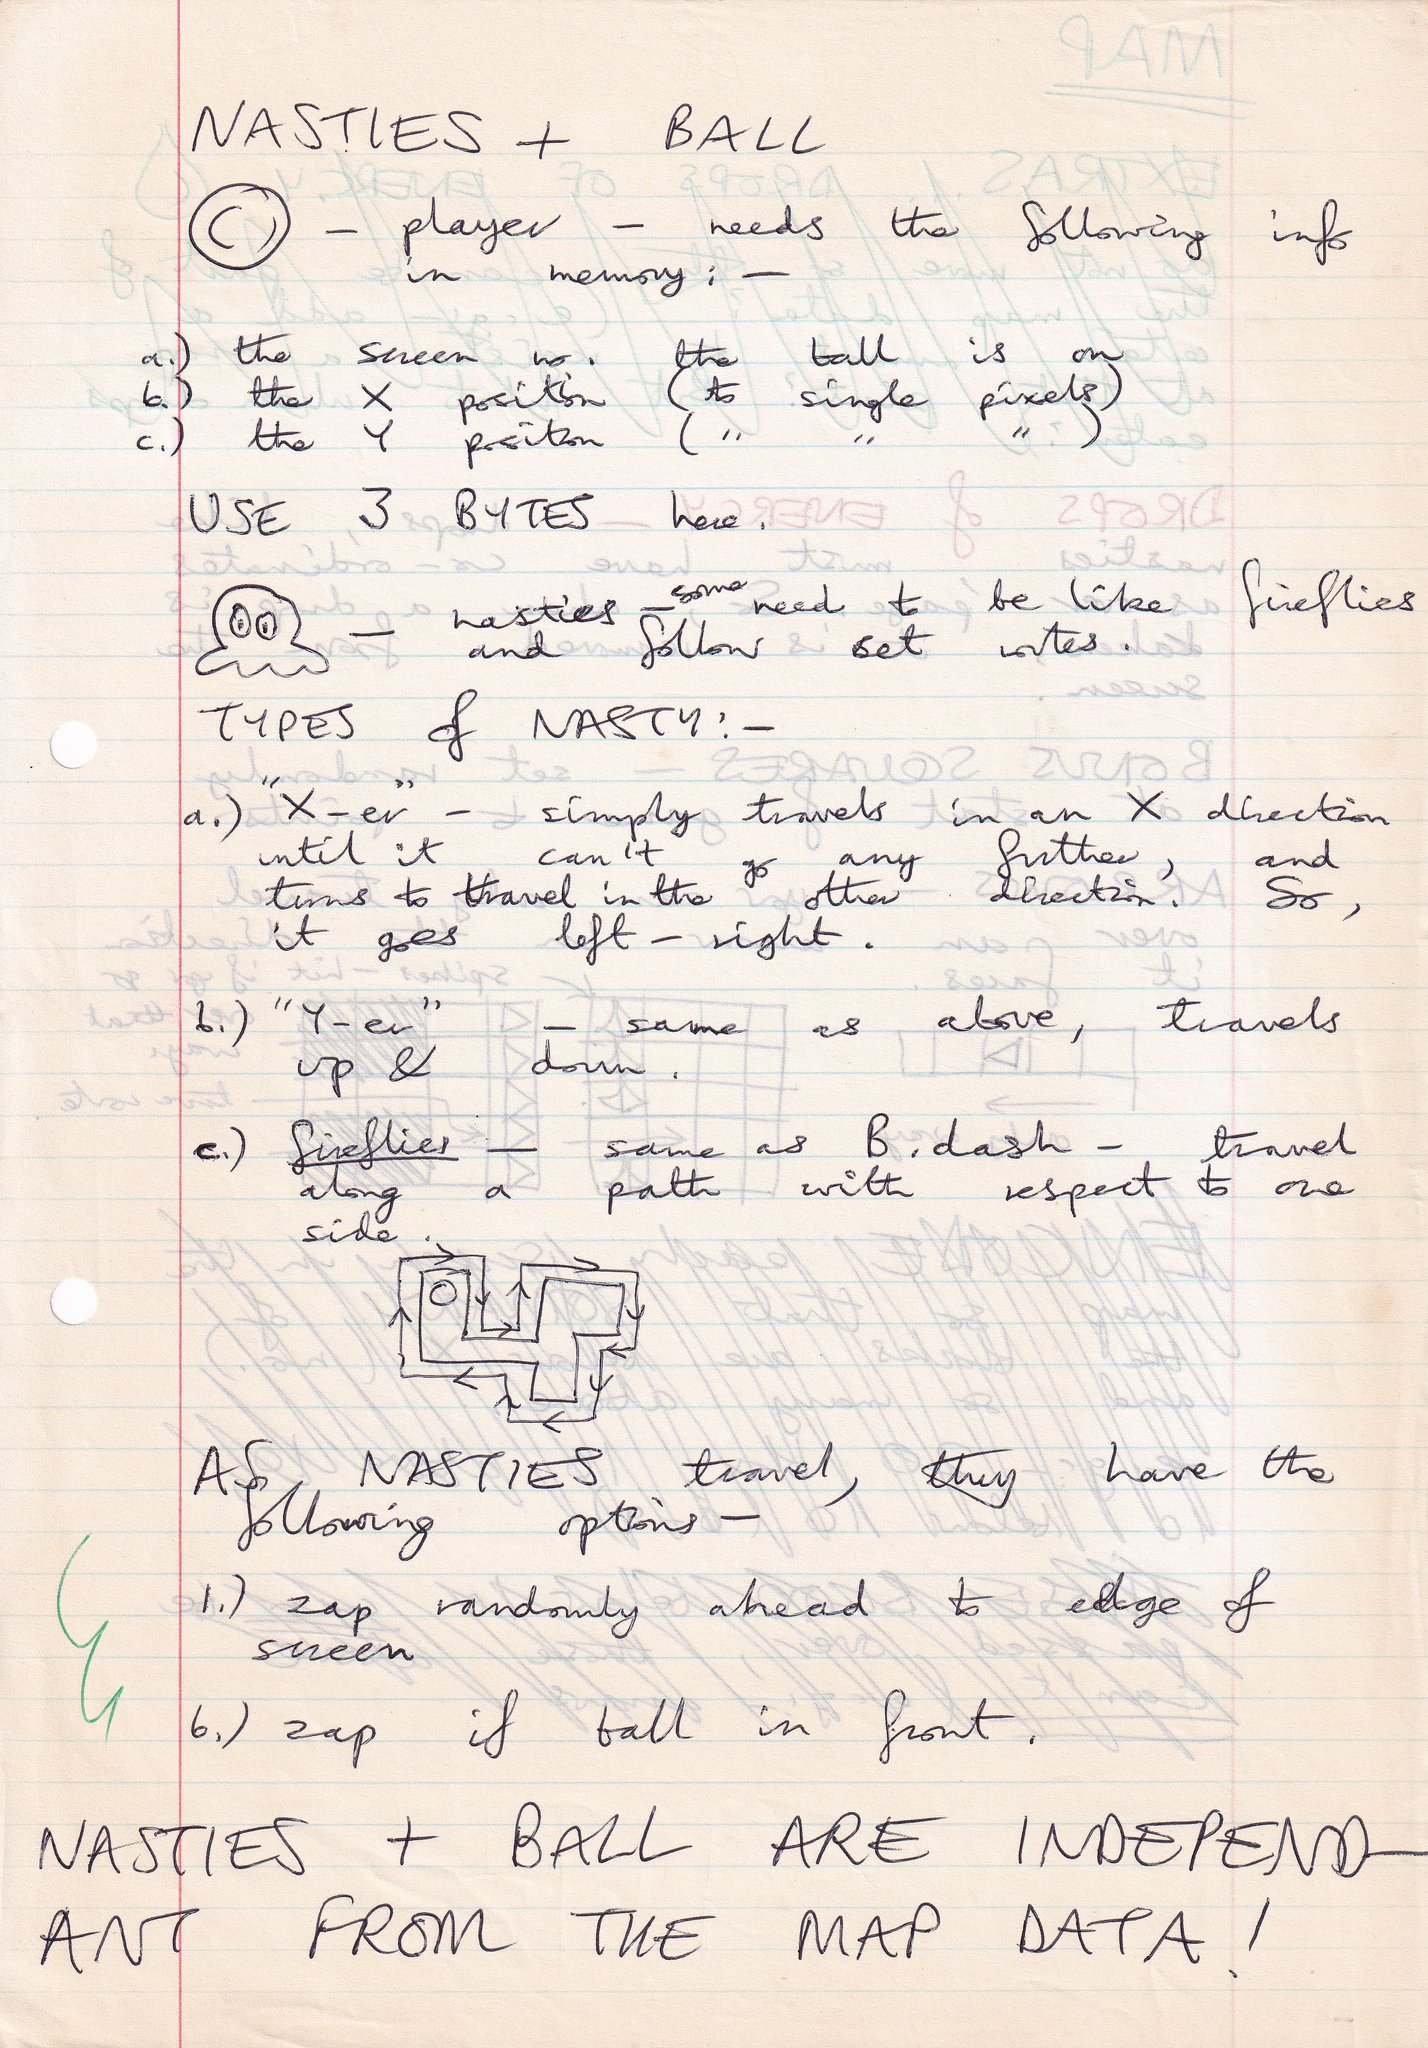 NASTIES + BALL
— player — needs the following info
in memory: —
a.) the screen no. the ball is on
b.) the X position (to single pixels)
c.) the Y position (" " ")
USE 3 BYTES here.
— nasties — some need to be like fireflies
and follow set routes.
TYPES of NASTY:—
a.) "X-er" — simply travels in an X direction
until it can't go any further, and
turns to travel in the other direction. So,
it goes left — right.
b.) "Y-er" — same as above, travels
up & down.
c.) fireflies — same as B.dash — travel
along a path with respect to one
side.
AS NASTIES travel, they have the
following options —
1.) zap randomly ahead to edge of
screen
b.) zap if ball in front.
NASTIES + BALL ARE INDEPEND-
ANT FROM THE MAP DATA!